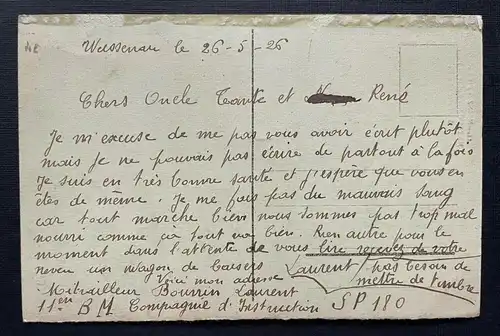 Weissenau le 26-5-26
Chers Oncle Tante et René
Je m'excuse de me pas vous avoir écrit plutôt
mais je ne pouvais pas écrire de partout à la fois
Je suis en très bonne santé et j'espère que vous en
êtes de même. Je me fais pas du mauvais sang
car tout marche bien nous sommes pas trop mal
nourri comme ça tout va bien. Rien autre pour le
moment dans l'attente de vous lire recevez de votre
neveu un wagon de baisers Laurent
pas besoin de
mettre de timbre
Voici mon adresse
Mitrailleur Bourrin Laurent
11 en BM Compagnie d'Instruction SP 180